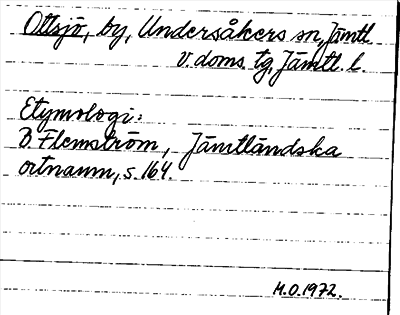 Ottsjö, by, Undersåkers sn, Jämtl.
v. doms. tg, Jämtl. l.
Etymologi:
B. Flemström, Jämtländska
ortnamn, s. 164.
M.O.1972.